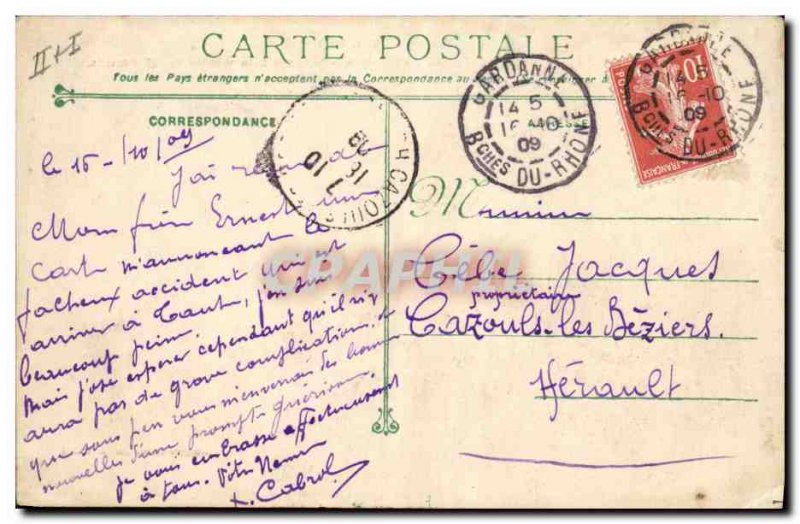 II+I
CARTE POSTALE
Tous les Pays étrangers n'acceptent pas la Correspondance au
CORRESPONDANCE
le 15-/10/09
J'ai reçu de
Mon frère Ernest une
Carte m'annonçant le
facheux accident qui est
arriver à Tante, j'en suis
beaucoup peiné.
Mais j'ose espérer cependant qu'il n'y
aura pas de grave complications, &
que sous peu vous m'enverrez des bonnes
nouvelles d'une prompte guérison.
Je vous embrasse affectueusement
à tous. Votre Neveu
Cabrol
CAZOULS
GARDANNE
14 5
16 -10
09
BCHES DU-RHÔNE
GARDANNE
14 5
16 -10
09
BCHES DU-RHÔNE
10
POSTES
FRANÇAISE
Monsieur
Cèbe Jacques
propriétaire
Cazouls-les-Béziers.
Hérault
CPAPHIL